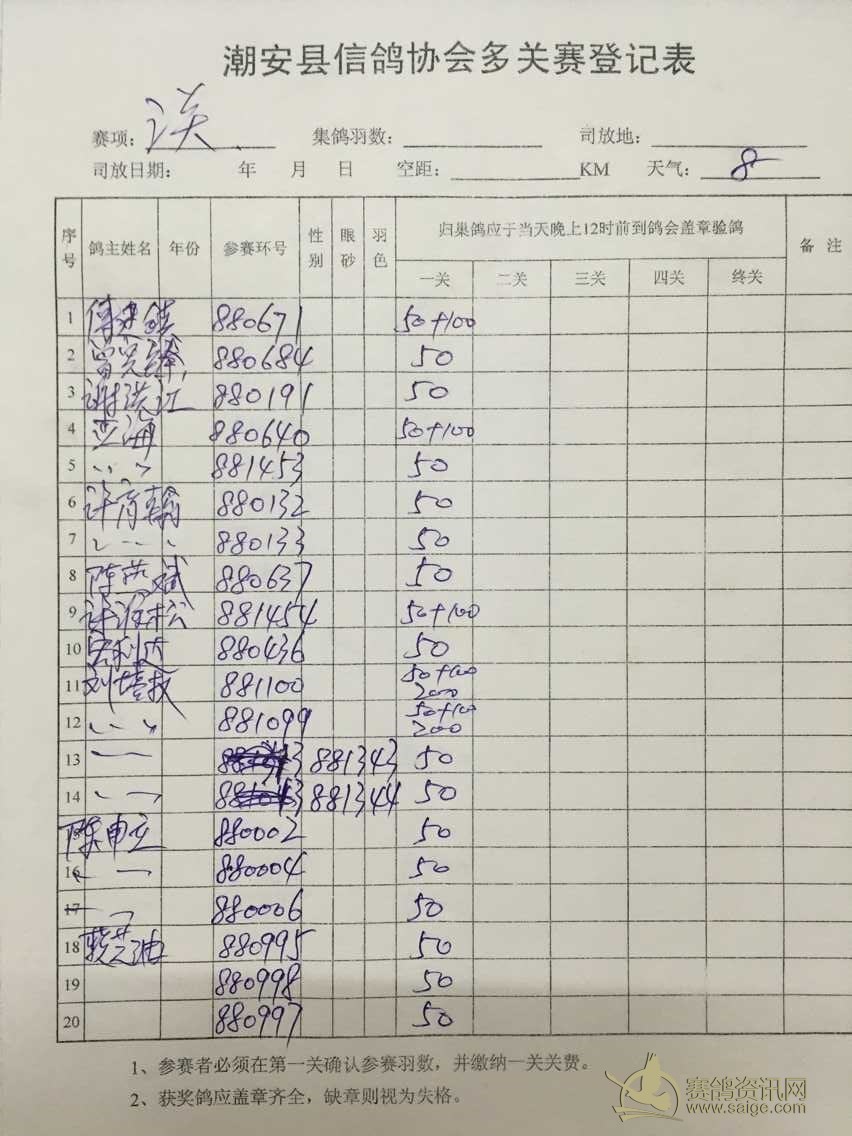 潮安县信鸽协会多关赛登记表
赛项: 集鸽羽数: 司放地:
司放日期: 年 月 日 空距: KM 天气: 8
序号 鸽主姓名 年份 参赛环号 性别 眼砂 羽色 归巢鸽应于当天晚上12时前到鸽会盖章验鸽 备 注
一关 二关 三关 四关 终关
1 880671 50+100
2 880684 50
3 谢洪江 880191 50
4 亚海 880640 50+100
5 〃 881453 50
6 许育翰 880132 50
7 〃 880133 50
8 880637 50
9 881454 50+100
10 880436 50
11 881100 50+100 200
12 〃 881099 50+100 200
13 〃 881343 50
14 〃 881344 50
15 陈申立 880002 50
16 〃 880004 50
17 〃 880006 50
18 880995 50
19 880998 50
20 880997 50
1、参赛者必须在第一关确认参赛羽数，并缴纳一关关费。
2、获奖鸽应盖章齐全，缺章则视为失格。
赛鸽资讯网
www.saige.com